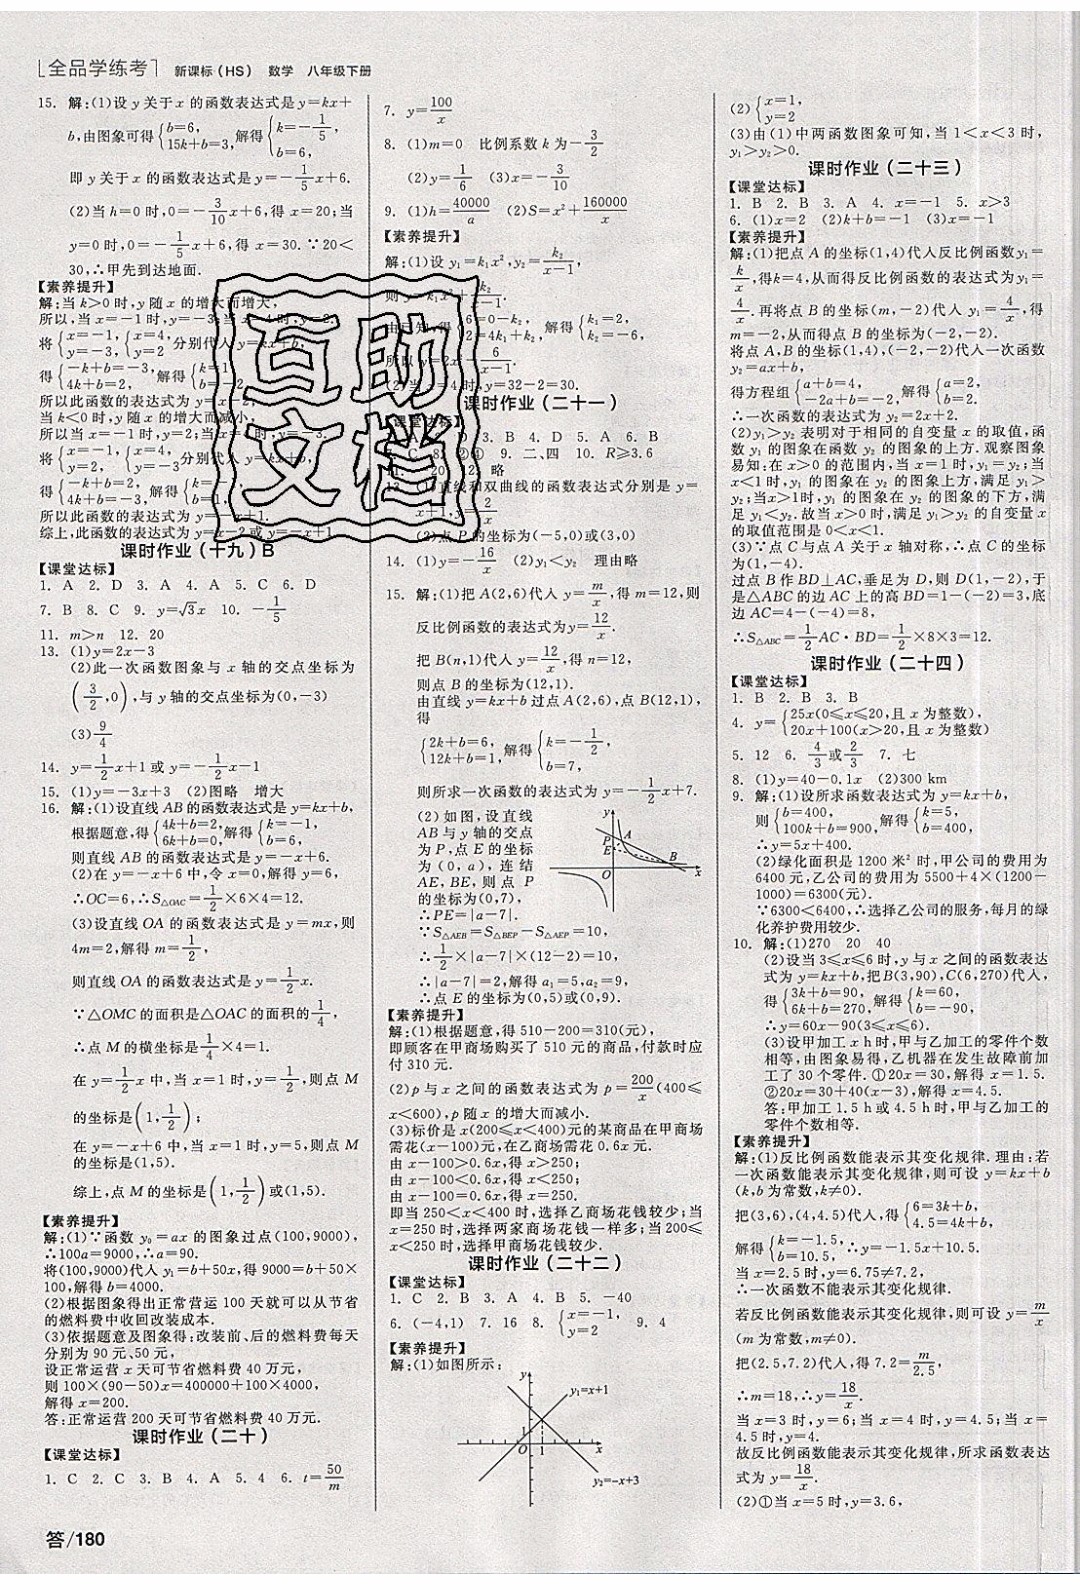 全品学练考 新课标(HS) 数学 八年级下册
15. 解:(1)设 y 关于 x 的函数表达式是 y=kx+
b,由图象可得{b=6, 15k+b=3, 解得{k=-1/5, b=6,
即 y 关于 x 的函数表达式是 y=-1/5x+6.
(2)当 h=0 时,0=-3/10x+6,得 x=20;当
y=0 时,0=-1/5x+6,得 x=30.∵20<
30,∴甲先到达地面.
【素养提升】
解:当 k>0 时,y 随 x 的增大而增大,
所以,当 x=-1 时,y=-3;当 x=4 时,y=2.
将{x=-1, y=-3, {x=4, y=2 分别代入 y=kx+b,
得{-k+b=-3, 4k+b=2, 解得{k=1, b=-2,
所以此函数的表达式为 y=x-2;
当 k<0 时,y 随 x 的增大而减小,
所以当 x=-1 时,y=2;当 x=4 时,y=-3.
将{x=-1, y=2, {x=4, y=-3 分别代入 y=kx+b,
得{-k+b=2, 4k+b=-3, 解得{k=-1, b=1,
所以此函数的表达式为 y=-x+1.
综上,此函数的表达式为 y=x-2 或 y=-x+1.
课时作业(十九)B
【课堂达标】
1. A 2. D 3. A 4. A 5. C 6. D
7. B 8. C 9. y=√3x 10. -1/5
11. m>n 12. 20
13. (1)y=2x-3
(2)此一次函数图象与 x 轴的交点坐标为
(3/2,0),与 y 轴的交点坐标为(0,-3)
(3)9/4
14. y=1/2x+1 或 y=-1/2x-1
15. (1)y=-3x+3 (2)图略 增大
16. 解:(1)设直线 AB 的函数表达式是 y=kx+b,
根据题意,得{4k+b=2, 6k+b=0, 解得{k=-1, b=6,
则直线 AB 的函数表达式是 y=-x+6.
(2)在 y=-x+6 中,令 x=0,解得 y=6,
∴OC=6,∴S△OAC=1/2×6×4=12.
(3)设直线 OA 的函数表达式是 y=mx,则
4m=2,解得 m=1/2,
则直线 OA 的函数表达式是 y=1/2x.
∵△OMC 的面积是△OAC 的面积的1/4,
∴点 M 的横坐标是1/4×4=1.
在 y=1/2x 中,当 x=1 时,y=1/2,则点 M
的坐标是(1,1/2);
在 y=-x+6 中,当 x=1 时,y=5,则点 M
的坐标是(1,5).
综上,点 M 的坐标是(1,1/2)或(1,5).
【素养提升】
解:(1)∵函数 y₀=ax 的图象过点(100,9000),
∴100a=9000,∴a=90.
将(100,9000)代入 y₁=b+50x,得 9000=b+50×
100,解得 b=4000.
(2)根据图象得出正常营运 100 天就可以从节省
的燃料费中收回改装成本.
(3)依据题意及图象得:改装前、后的燃料费每天
分别为 90 元、50 元,
设正常营运 x 天可节省燃料费 40 万元,
则 100×(90-50)x=400000+100×4000,
解得 x=200.
答:正常营运 200 天可节省燃料费 40 万元.
课时作业(二十)
【课堂达标】
1. C 2. C 3. B 4. A 5. 4 6. t=50/m
7. y=100/x
8. (1)m=0 比例系数 k 为-3/2
(2)y=1/6 (3)x=-3/10
9. (1)h=40000/a (2)S=x²+160000/x
【素养提升】
解:(1)设 y₁=k₁x²,y₂=k₂/(x-1),
则 y=k₁x²+k₂/(x-1).
由已知,得{6=0-k₂, 2=4k₁+k₂, 解得{k₁=2, k₂=-6,
所以 y=2x²-6/(x-1).
(2)当 x=4 时,y=32-2=30.
课时作业(二十一)
【课堂达标】
A D 3. B 4. D 5. A 6. B
C 8. ②④ 9. 二、四 10. R≥3.6
11. 20 12. 略
13. (1)直线和双曲线的函数表达式分别是 y=
x+1,y=2/x
(2)点 P 的坐标为(-5,0)或(3,0)
14. (1)y=-16/x (2)y₁<y₂ 理由略
15. 解:(1)把 A(2,6)代入 y=m/x,得 m=12,则
反比例函数的表达式为y=12/x.
把 B(n,1)代入 y=12/x,得 n=12,
则点 B 的坐标为(12,1).
由直线 y=kx+b 过点 A(2,6),点 B(12,1),
得
{2k+b=6, 12k+b=1, 解得{k=-1/2, b=7,
则所求一次函数的表达式为 y=-1/2x+7.
(2) 如图,设直线
AB 与 y 轴的交点
为 P,点 E 的坐标
为 (0,a), 连结
AE,BE,则点 P
的坐标为(0,7),
∴PE=|a-7|.
y
A
P
E
B
O
x
∵S△AEB=S△BEP-S△AEP=10,
∴1/2×|a-7|×(12-2)=10,
∴|a-7|=2,解得 a₁=5,a₂=9,
∴点 E 的坐标为(0,5)或(0,9).
【素养提升】
解:(1)根据题意,得 510-200=310(元),
即顾客在甲商场购买了 510 元的商品,付款时应
付 310 元.
(2)p 与 x 之间的函数表达式为 p=200/x(400≤
x<600),p 随 x 的增大而减小.
(3)标价是 x(200≤x<400)元的某商品在甲商场
需花(x-100)元,在乙商场需花 0.6x 元.
由 x-100>0.6x,得 x>250;
由 x-100<0.6x,得 x<250;
由 x-100=0.6x,得 x=250.
即当 250<x<400 时,选择乙商场花钱较少;当
x=250 时,选择两家商场花钱一样多;当 200≤
x<250 时,选择甲商场花钱较少.
课时作业(二十二)
【课堂达标】
1. C 2. B 3. A 4. B 5. -40
6. (-4,1) 7. 16 8. {x=-1, y=2 9. 4
【素养提升】
解:(1)如图所示:
y
y₁=x+1
1
O 1 x
y₂=-x+3
(2){x=1, y=2
(3)由(1)中两函数图象可知,当 1<x<3 时,
y₁>y₂>0.
课时作业(二十三)
【课堂达标】
1. B 2. B 3. A 4. x=-1 5. x>3
6. (1)x=2 (2)k+b=-1 (3)x=-1
【素养提升】
解:(1)把点 A 的坐标(1,4)代入反比例函数y₁=
k/x,得k=4,从而得反比例函数的表达式为y₁=
4/x.再将点 B 的坐标(m,-2)代入 y₁=4/x,得
m=-2,从而得点 B 的坐标为(-2,-2).
将点 A,B 的坐标(1,4),(-2,-2)代入一次函数
y₂=ax+b,
得方程组{a+b=4, -2a+b=-2, 解得{a=2, b=2.
∴一次函数的表达式为 y₂=2x+2.
(2)y₁>y₂ 表明对于相同的自变量 x 的取值,函
数 y₁ 的图象在函数 y₂ 的图象的上方.观察图象
易知:在 x>0 的范围内,当 x=1 时,y₁=y₂;当
x<1 时,y₁ 的图象在 y₂ 的图象上方,满足 y₁>
y₂;当x>1时,y₁ 的图象在 y₂ 的图象的下方,满
足 y₁<y₂.故当 x>0 时,满足 y₁>y₂ 的自变量 x
的取值范围是 0<x<1.
(3)∵点 C 与点 A 关于 x 轴对称,∴点 C 的坐标
为(1,-4).
过点 B 作 BD⊥AC,垂足为 D,则 D(1,-2),于
是△ABC 的边 AC 上的高 BD=1-(-2)=3,底
边 AC=4-(-4)=8,
∴S△ABC=1/2AC·BD=1/2×8×3=12.
课时作业(二十四)
【课堂达标】
1. B 2. B 3. B
4. y={25x(0≤x≤20,且 x 为整数), 20x+100(x>20,且 x 为整数)
5. 12 6. 4/3或2/3 7. 七
8. (1)y=40-0.1x (2)300 km
9. 解:(1)设所求函数表达式为 y=kx+b,
则{b=400, 100k+b=900, 解得{k=5, b=400,
∴y=5x+400.
(2)绿化面积是 1200 米² 时,甲公司的费用为
6400 元,乙公司的费用为 5500+4×(1200-
1000)=6300(元).
∵6300<6400,∴选择乙公司的服务,每月的绿
化养护费用较少.
10. 解:(1)270 20 40
(2)设当 3≤x≤6 时,y 与 x 之间的函数表达
式为 y=kx+b,把B(3,90),C(6,270)代入,
得{3k+b=90, 6k+b=270, 解得{k=60, b=-90,
∴y=60x-90(3≤x≤6).
(3)设甲加工 x h 时,甲与乙加工的零件个数
相等,由图象易得,乙机器在发生故障前加
工了 30 个零件.①20x=30,解得 x=1.5.
②20x=30+40(x-3),解得 x=4.5.
答:甲加工 1.5 h或 4.5 h时,甲与乙加工的
零件个数相等.
【素养提升】
解:(1)反比例函数能表示其变化规律.理由:若
一次函数能表示其变化规律,则可设 y=kx+b
(k,b 为常数,k≠0).
把(3,6),(4,4.5)代入,得{6=3k+b, 4.5=4k+b,
解得{k=-1.5, b=10.5, ∴y=-1.5x+10.5.
当 x=2.5 时,y=6.75≠7.2,
∴一次函数不能表示其变化规律.
若反比例函数能表示其变化规律,则可设 y=m/x
(m 为常数,m≠0).
把(2.5,7.2)代入,得 7.2=m/2.5,
∴m=18,∴y=18/x.
当 x=3 时,y=6;当 x=4 时,y=4.5;当 x=
4.5 时,y=4.
故反比例函数能表示其变化规律,所求函数表达
式为 y=18/x.
(2)①当 x=5 时,y=3.6,
互助
文档
答/180